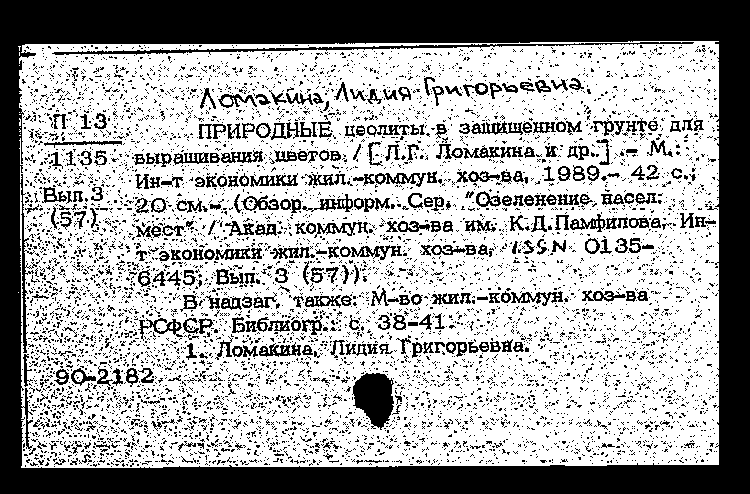 Ломакина, Лидия Григорьевна.
П 13
1135
Вып.3
(57)
ПРИРОДНЫЕ цеолиты в защищенном грунте для
выращивания цветов / [Л.Г. Ломакина и др.] .- М.:
Ин-т экономики жил.-коммун. хоз-ва, 1989.- 42 с.;
20 см.- (Обзор. информ. Сер. "Озеленение насел.
мест" / Акад. коммун. хоз-ва им. К.Д.Памфилова, Ин-
т экономики жил.-коммун. хоз-ва, ISSN 0135-
6445; Вып. 3 (57)).
В надзаг. также: М-во жил.-коммун. хоз-ва
РСФСР. Библиогр.: с. 38-41.
1. Ломакина, Лидия Григорьевна.
90-2182